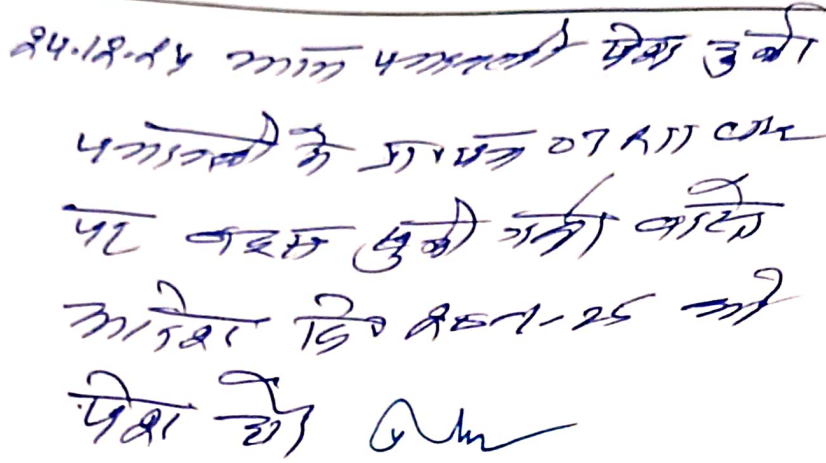 24.12.24 आज पत्रावली पेश हुयी
पत्रावली में प्रा० पत्र 07 R11 CPC
पर बहस सुनी गयी वास्ते
आदेश दि० 28-1-25 को
पेश हो।